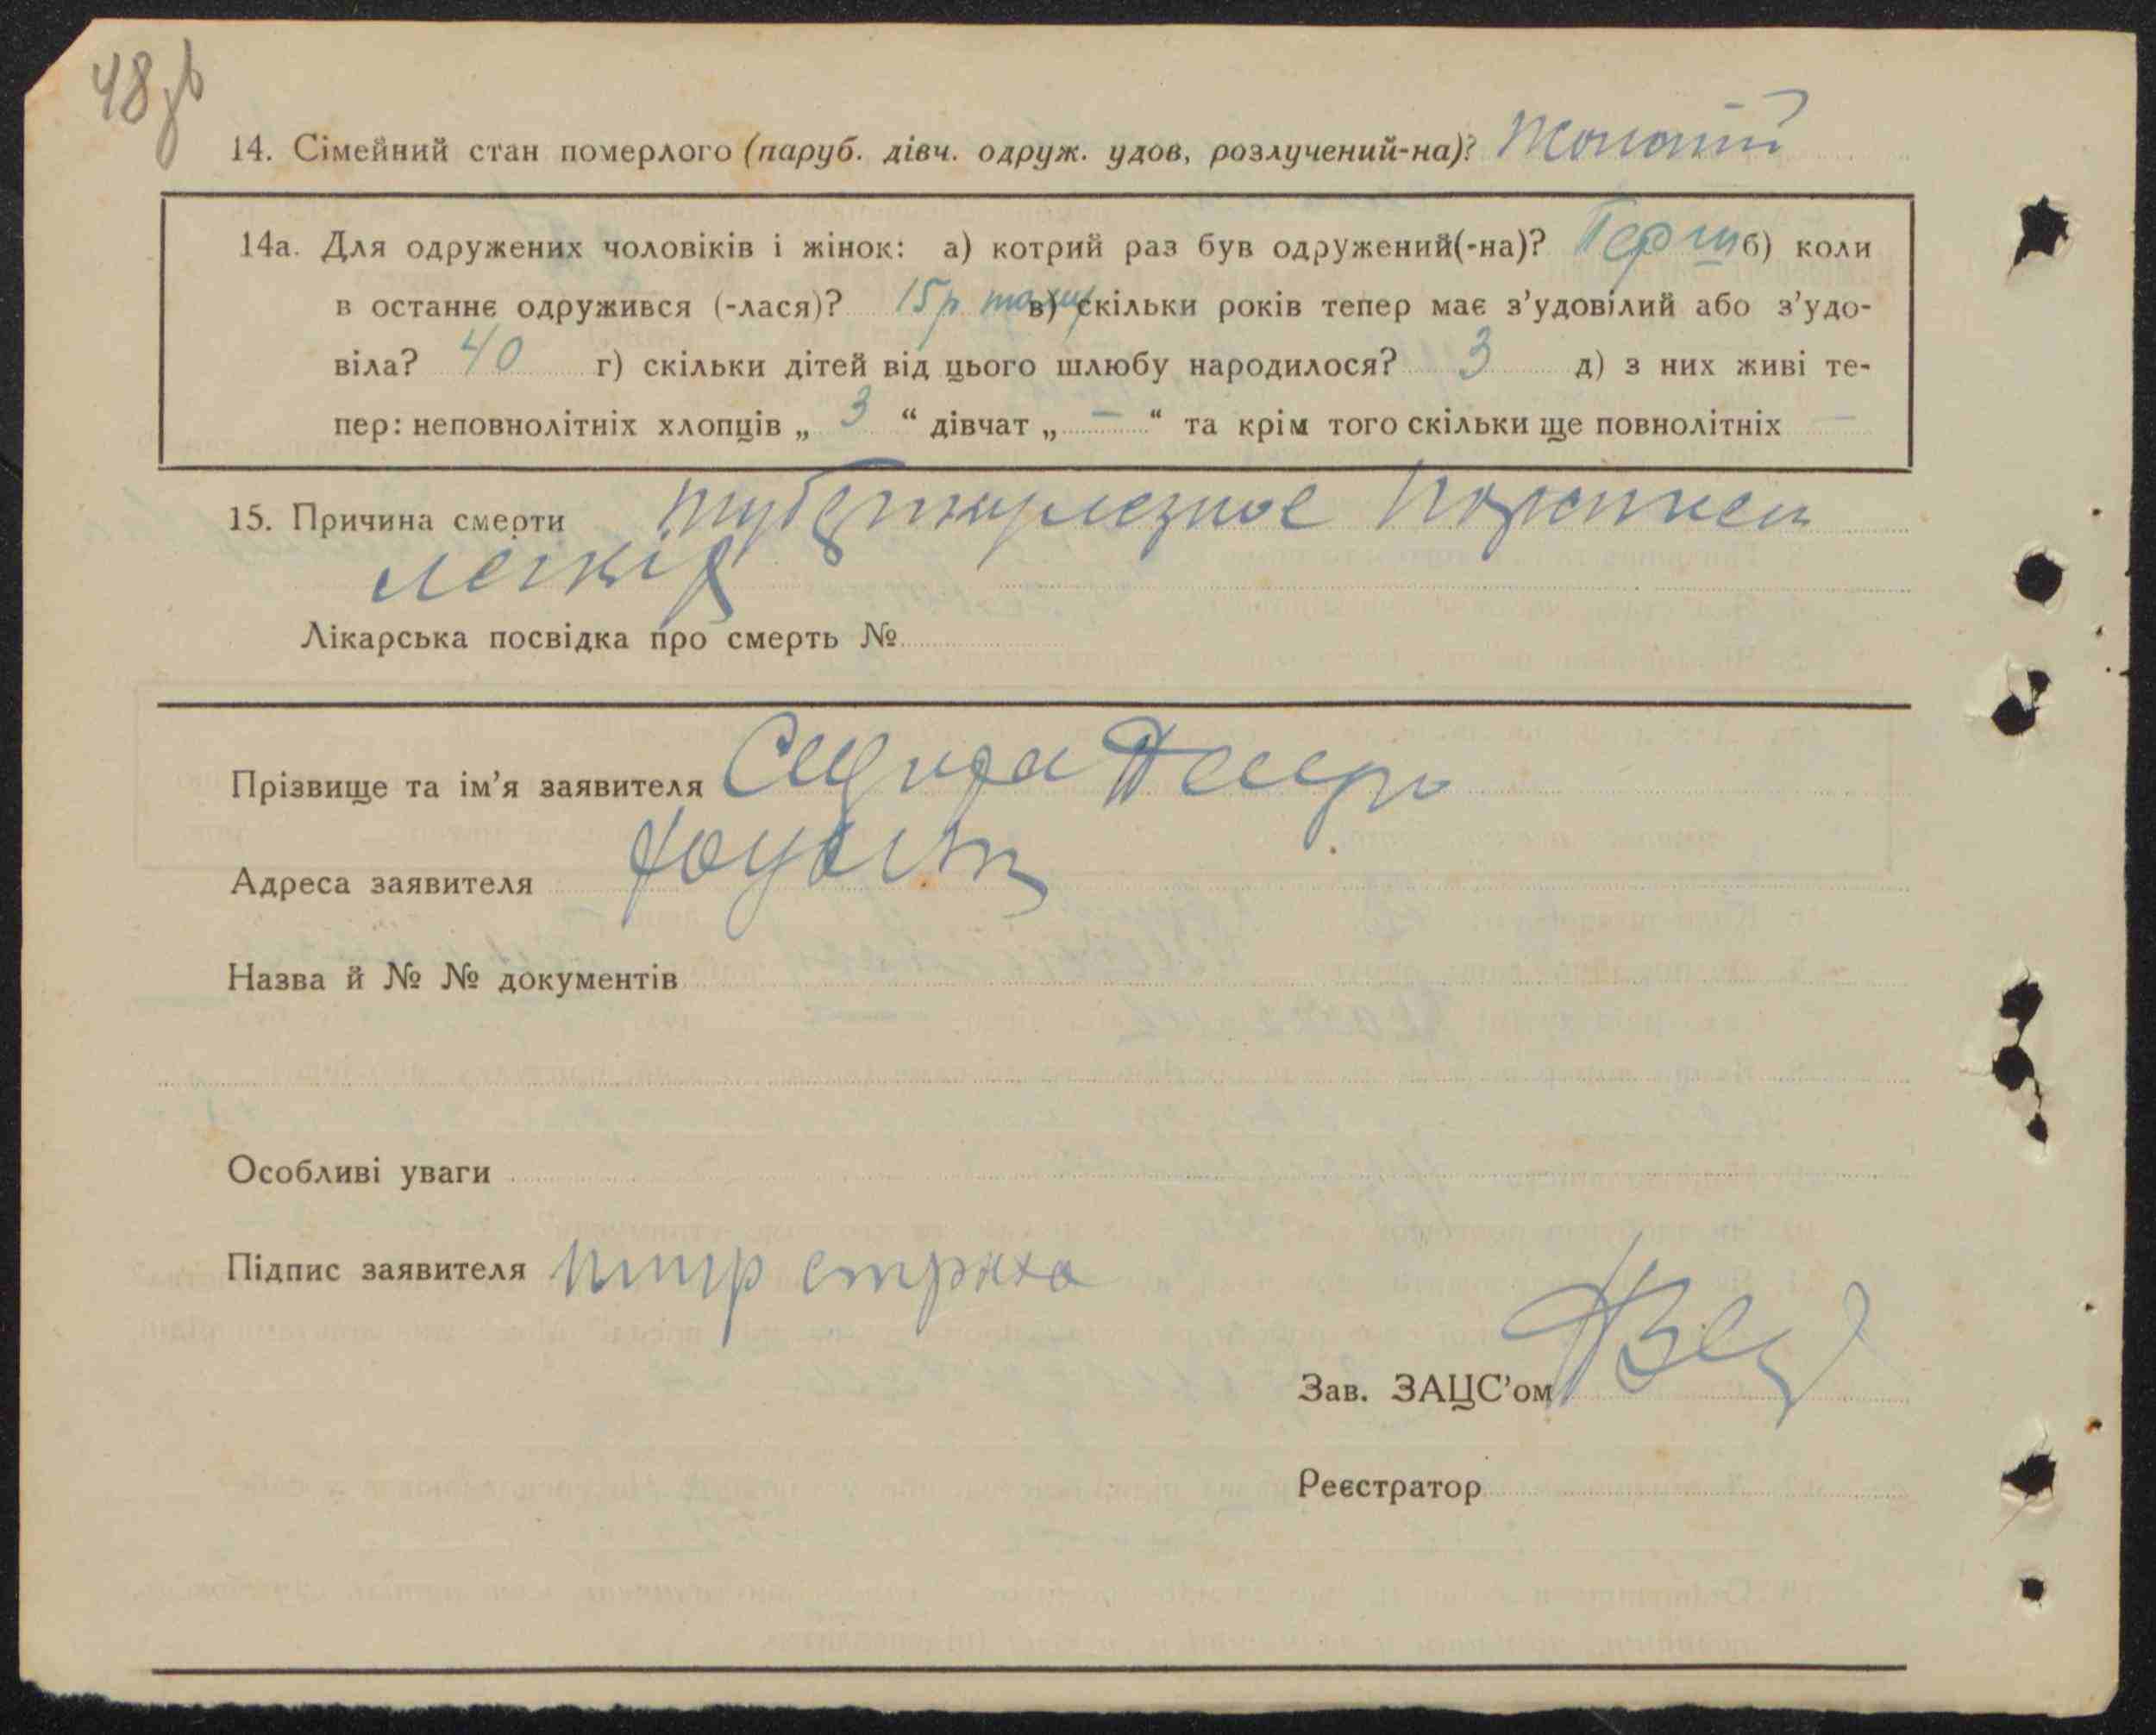 48зв
14. Сімейний стан померлого (паруб. дівч. одруж. удов, розлучений-на)? Жонатий
14а. Для одружених чоловіків і жінок: а) котрий раз був одружений(-на)? Перш б) коли
в останнє одружився (-лася)? 15р тому в) скільки років тепер має з’удовілий або з’удо-
віла? 40 г) скільки дітей від цього шлюбу народилося? 3 д) з них живі те-
пер: неповнолітніх хлопців „ 3 “ дівчат „ — “ та крім того скільки ще повнолітніх —
15. Причина смерти туберкулезное
легких
Лікарська посвідка про смерть №
Прізвище та ім’я заявителя
Адреса заявителя
Назва й № № документів
Особливі уваги
Підпис заявителя
Зав. ЗАЦС’ом
Реєстратор